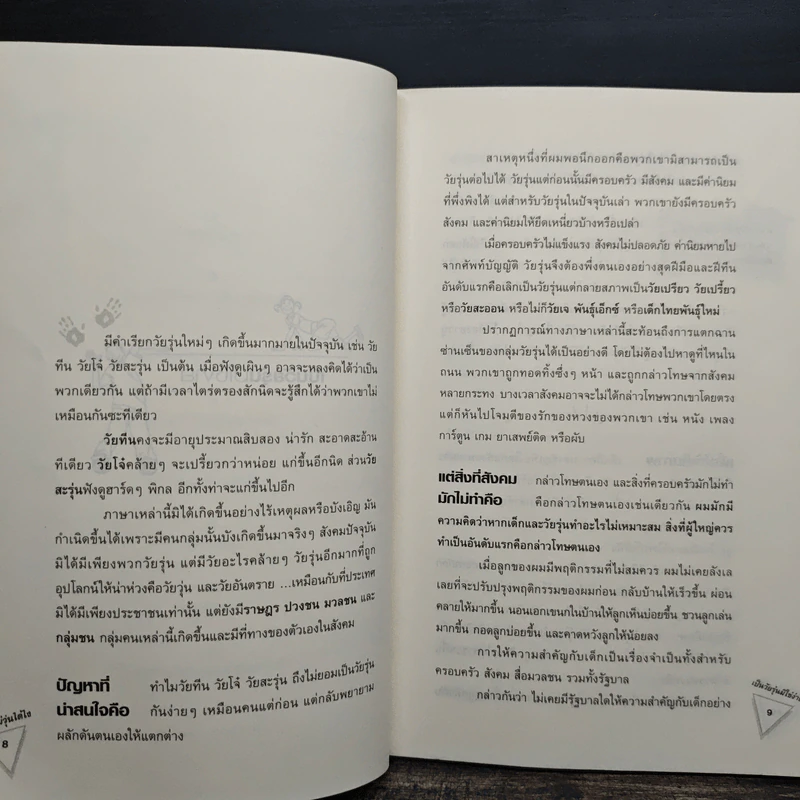 มีคำเรียกวัยรุ่นใหม่ๆ เกิดขึ้นมากมายในปัจจุบัน เช่น วัย
ทีน วัยโจ๋ วัยสะรุ่น เป็นต้น เมื่อฟังดูเผินๆ อาจจะหลงคิดได้ว่าเป็น
พวกเดียวกัน แต่ถ้ามีเวลาไตร่ตรองสักนิดจะรู้สึกได้ว่าพวกเขาไม่
เหมือนกันซะทีเดียว
วัยทีนคงจะมีอายุประมาณสิบสอง น่ารัก สะอาดสะอ้าน
ทีเดียว วัยโจ๋คล้ายๆ จะเปรี้ยวกว่าหน่อย แก่ขึ้นอีกนิด ส่วนวัย
สะรุ่นฟังดูฮาร์ดๆ พิกล อีกทั้งท่าจะแก่ขึ้นไปอีก
ภาษาเหล่านี้มิได้เกิดขึ้นอย่างไร้เหตุผลหรือบังเอิญ มัน
กำเนิดขึ้นได้เพราะมีคนกลุ่มนั้นบังเกิดขึ้นมาจริงๆ สังคมปัจจุบัน
มิได้มีเพียงพวกวัยรุ่น แต่มีวัยอะไรคล้ายๆ วัยรุ่นอีกมากที่ถูก
อุปโลกน์ให้น่าห่วงคือวัยวุ่น และวัยอันตราย ...เหมือนกับที่ประเทศ
มิได้มีเพียงประชาชนเท่านั้น แต่ยังมีราษฎร ปวงชน มวลชน และ
กลุ่มชน กลุ่มคนเหล่านี้เกิดขึ้นและมีที่ทางของตัวเองในสังคม
ปัญหาที่ ทำไมวัยทีน วัยโจ๋ วัยสะรุ่น ถึงไม่ยอมเป็นวัยรุ่น
น่าสนใจคือ กันง่ายๆ เหมือนคนแต่ก่อน แต่กลับพยายาม
ผลักดันตนเองให้แตกต่าง
8
สาเหตุหนึ่งที่ผมพอนึกออกคือพวกเขามิสามารถเป็น
วัยรุ่นต่อไปได้ วัยรุ่นแต่ก่อนนั้นมีครอบครัว มีสังคม และมีค่านิยม
ที่พึ่งพิงได้ แต่สำหรับวัยรุ่นในปัจจุบันเล่า พวกเขายังมีครอบครัว
สังคม และค่านิยมให้ยึดเหนี่ยวบ้างหรือเปล่า
เมื่อครอบครัวไม่แข็งแรง สังคมไม่ปลอดภัย ค่านิยมหายไป
จากศัพท์บัญญัติ วัยรุ่นจึงต้องพึ่งตนเองอย่างสุดฝีมือและฝีทีน
อันดับแรกคือเลิกเป็นวัยรุ่นแต่กลายสภาพเป็นวัยเปรียว วัยเปรี้ยว
หรือวัยสะออน หรือไม่ก็วัยเจ พันธุ์เอ็กซ์ หรือเด็กไทยพันธุ์ใหม่
ปรากฏการณ์ทางภาษาเหล่านี้สะท้อนถึงการแตกฉาน
ซ่านเซ็นของกลุ่มวัยรุ่นได้เป็นอย่างดี โดยไม่ต้องไปหาดูที่ไหนใน
ถนน พวกเขาถูกทอดทิ้งซึ่งๆ หน้า และถูกกล่าวโทษจากสังคม
หลายกระทง บางเวลาสังคมอาจจะไม่ได้กล่าวโทษพวกเขาโดยตรง
แต่ก็หันไปโจมตีของรักของหวงของพวกเขา เช่น หนัง เพลง
การ์ตูน เกม ยาเสพย์ติด หรือผับ
แต่สิ่งที่สังคม กล่าวโทษตนเอง และสิ่งที่ครอบครัวมักไม่ทำ
มักไม่ทำคือ คือกล่าวโทษตนเองเช่นเดียวกัน ผมมักมี
ความคิดว่าหากเด็กและวัยรุ่นทำอะไรไม่เหมาะสม สิ่งที่ผู้ใหญ่ควร
ทำเป็นอันดับแรกคือกล่าวโทษตนเอง
เมื่อลูกของผมมีพฤติกรรมที่ไม่สมควร ผมไม่เคยลังเล
เลยที่จะปรับปรุงพฤติกรรมของผมก่อน กลับบ้านให้เร็วขึ้น ผ่อน
คลายให้มากขึ้น นอนเอกเขนกในบ้านให้ลูกเห็นบ่อยขึ้น ชวนลูกเล่น
มากขึ้น กอดลูกบ่อยขึ้น และคาดหวังลูกให้น้อยลง
การให้ความสำคัญกับเด็กเป็นเรื่องจำเป็นทั้งสำหรับ
ครอบครัว สังคม สื่อมวลชน รวมทั้งรัฐบาล
กล่าวกันว่า ไม่เคยมีรัฐบาลใดให้ความสำคัญกับเด็กอย่าง
9